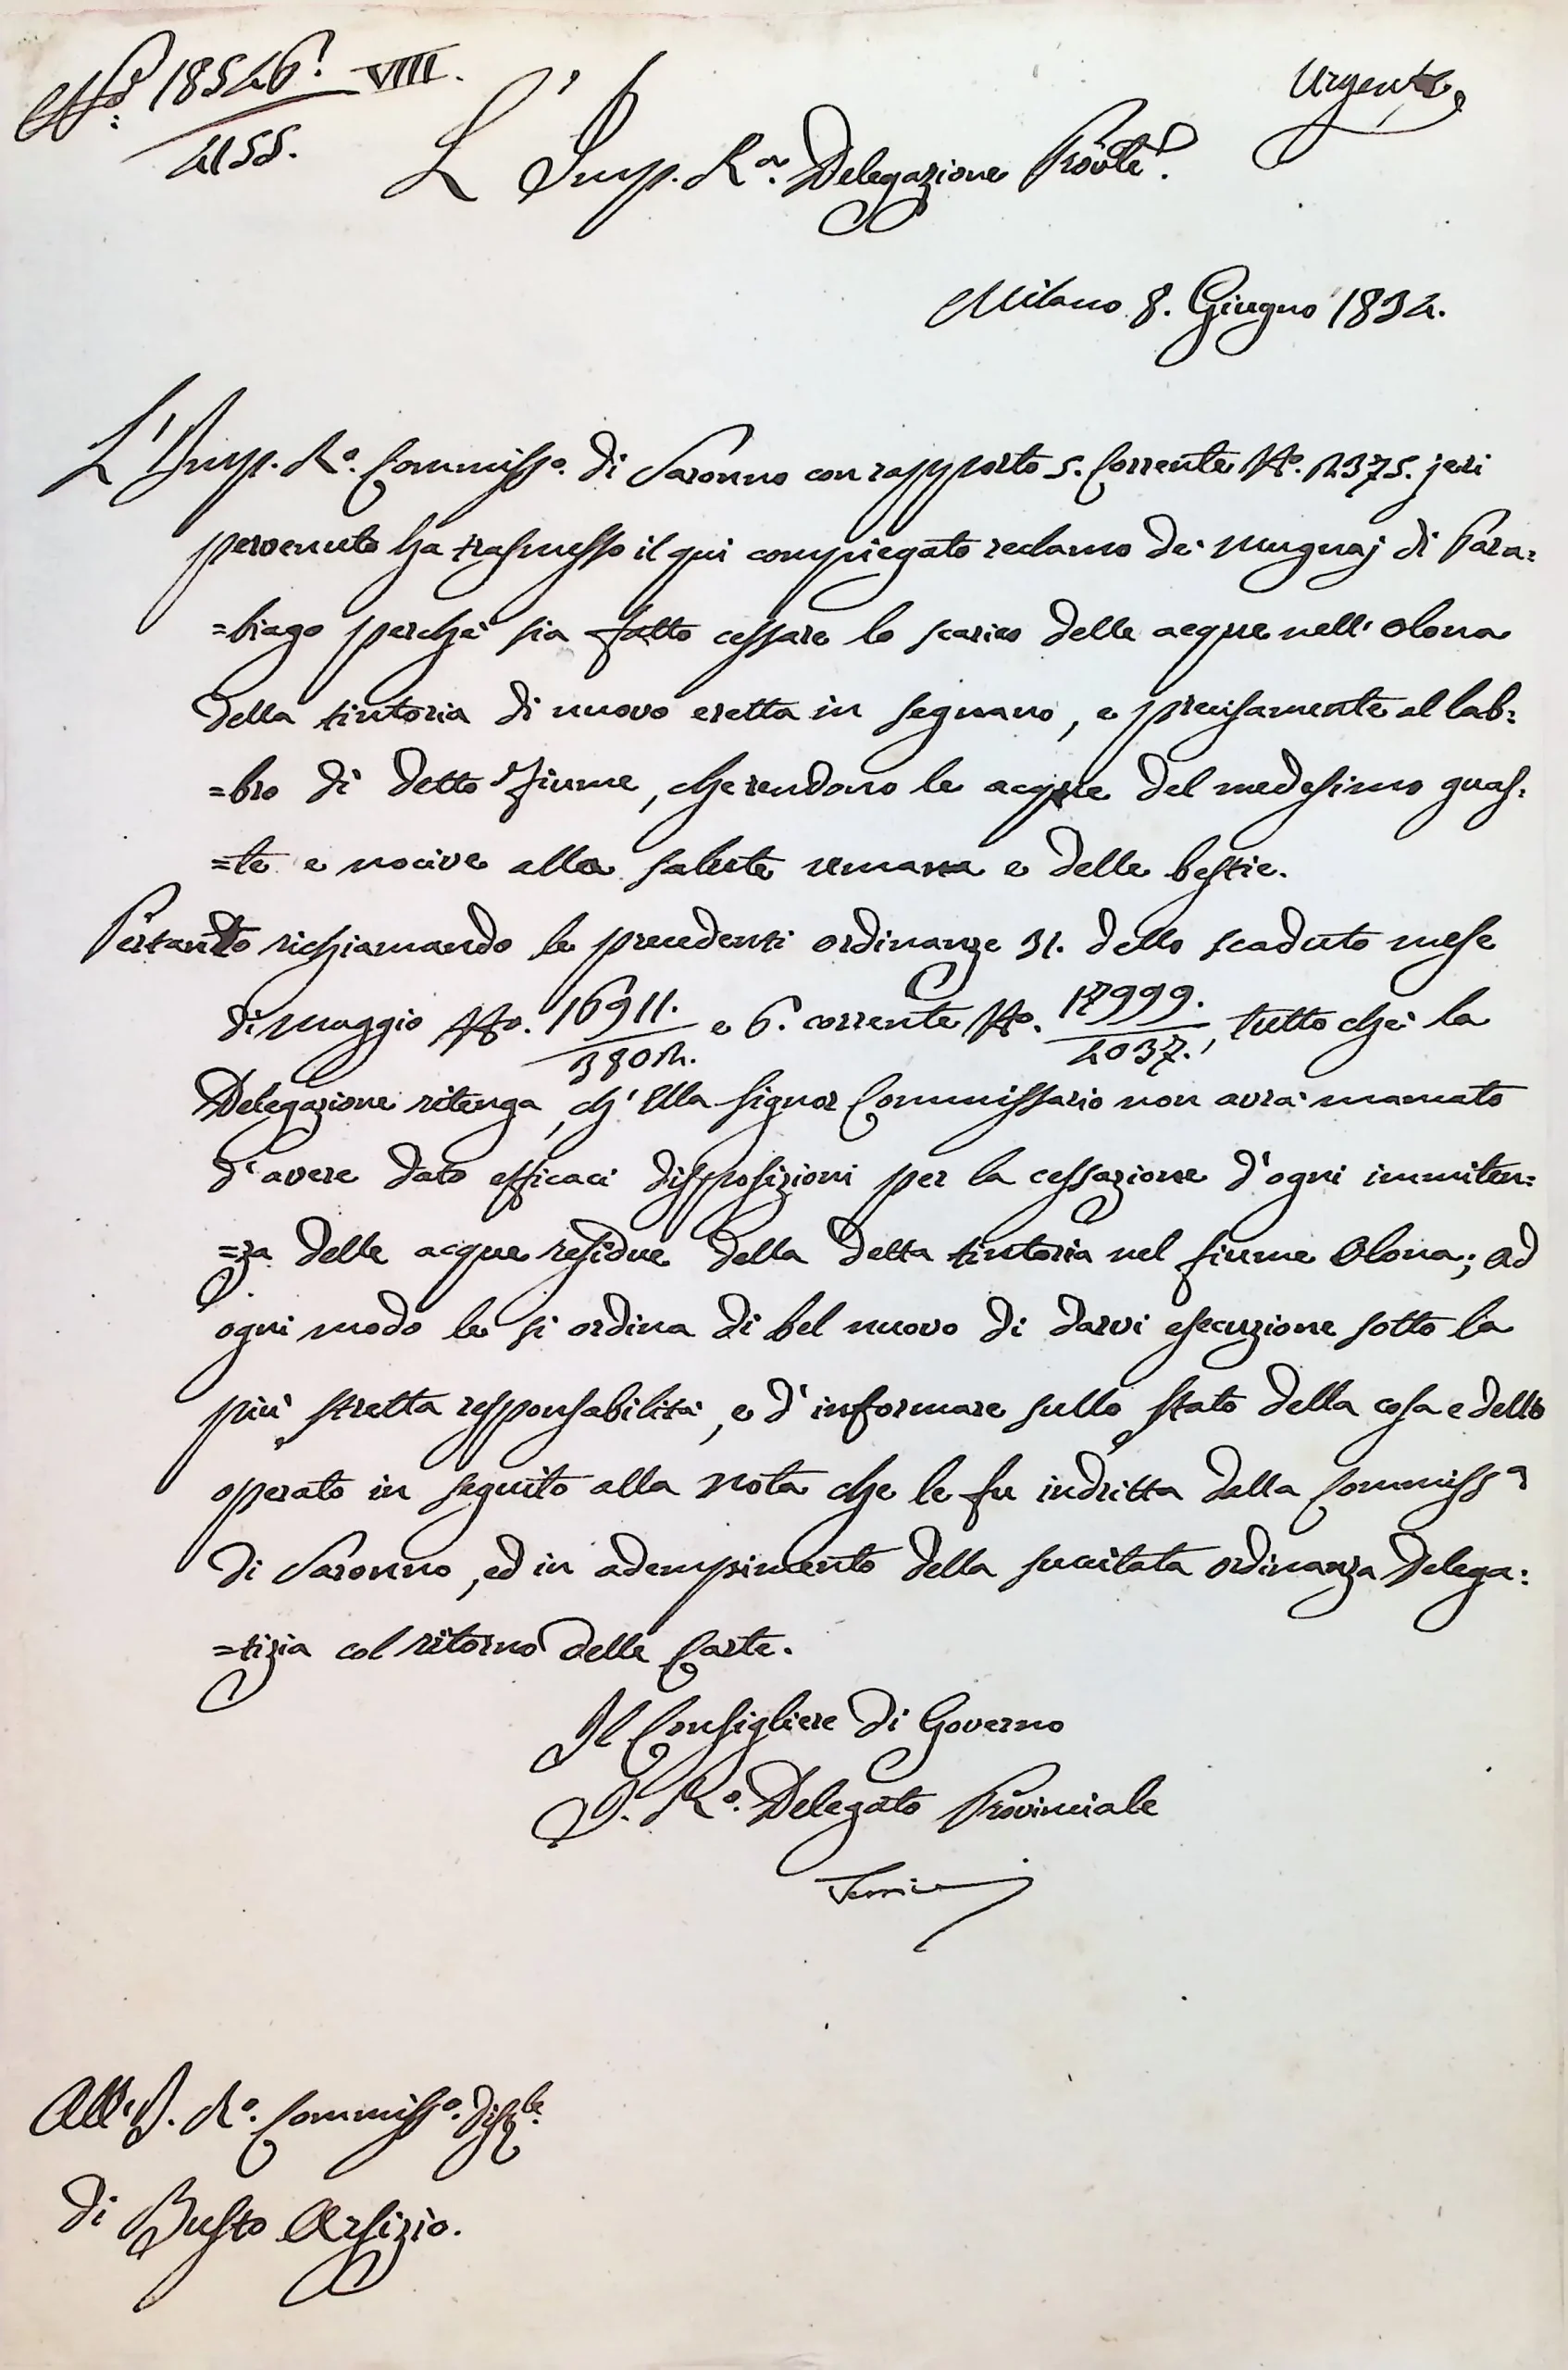 N.° 18546. VIII.
4155.
Urgente
L'Imp. R.a Delegazione Prov.le
Milano 8. Giugno 1834.
L'Imp. R.o Commiss.o di Saronno con rapporto 5. Corrente N.o 2375. jeri
pervenuto ha trasmesso il qui compiegato reclamo de' mugnaj di Para:
=biago perchè sia fatto cessare lo scarico delle acque nell'Olona
della tintoria di nuovo eretta in Legnano, e precisamente al lab:
=bro di detto Fiume, che rendono le acque del medesimo guas:
=te e nocive alla salute umana e delle bestie.
Pertanto richiamando le precedenti ordinanze 31. dello scaduto mese
di maggio N.o 16911./3802. e 6. corrente N.o 17999./4037., tutto chè la
Delegazione ritenga, ch'Ella Signor Commissario non avrà mancato
d'avere dato efficaci disposizioni per la cessazione d'ogni immiten:
=za delle acque residue della detta tintoria nel fiume Olona; ad
ogni modo le si ordina di bel nuovo di darvi esecuzione sotto la
più stretta responsabilità, e d'informare sullo stato della cosa e dello
operato in seguito alla nota che le fu indritta dalla Commiss.a
di Saronno, ed in adempimento della succitata ordinanza Delega:
=tizia col ritorno delle Carte.
Il Consigliere di Governo
I. R.o Delegato Provinciale
All'I. R.o Commiss.o Dist.le
di Busto Arsizio.